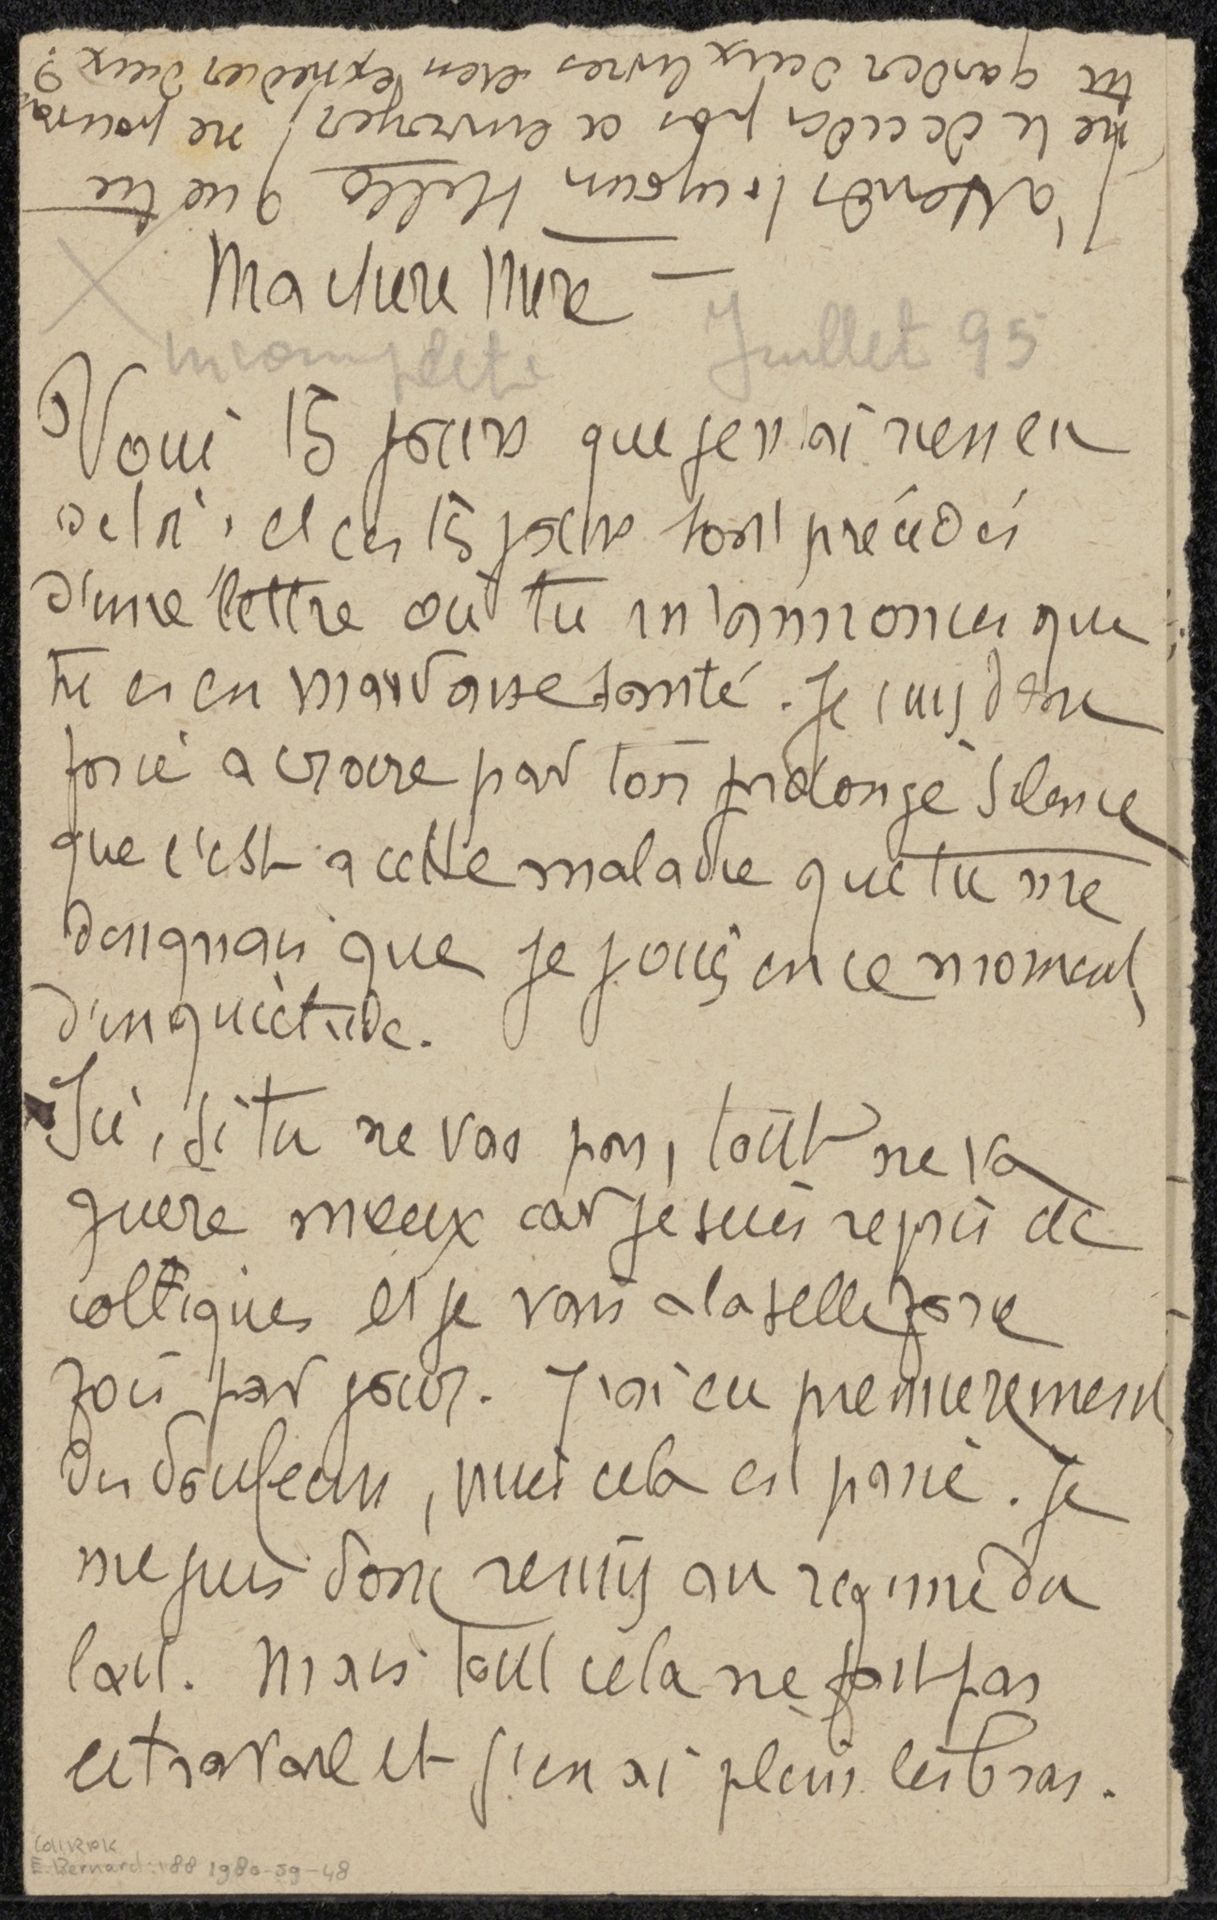 j'attends toujours Hello que tu
ne te decides pas a envoyer / ne pourrais
tu garder deux livres et en expedier deux ?
Ma chere Mere —
incomplete Juillet 95
Voici 15 jours que je n'ai rien eu
de toi, et ces 15 jours sont précédés
d'une lettre où tu m'annonces que
tu es en mauvaise santé. Je suis donc
forcé a croire par ton prolongé silence
que c'est a cette maladie que tu me
que je suis en ce moment
d'inquiètude.
Ici, si tu ne vas pas, tout ne va
guere mieux car je suis repris de
coliques et je vais a la selle
fois par jour. J'ai eu premierement
des douleurs, puis cela est passé. Je
me suis donc remis au regime du
lait. Mais tout cela ne fait pas
le travail et j'en ai plein les bras.
Coll RPK
E. Bernard : 88 1980-59-48